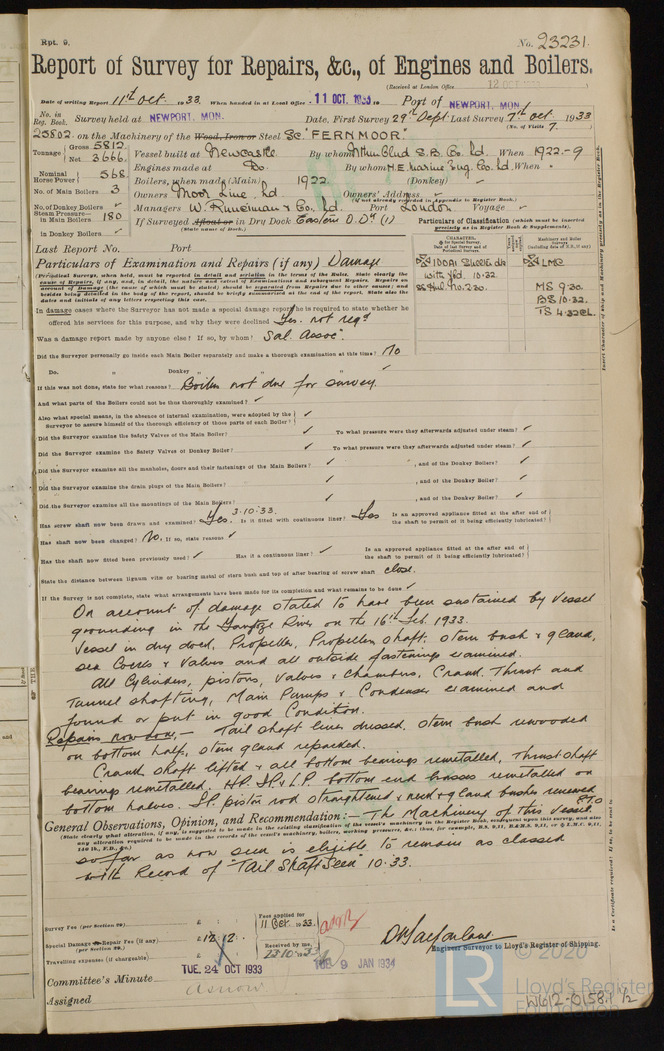 Rpt. 9.
No. 23231.
Report of Survey for Repairs, &c., of Engines and Boilers.
(Received at London Office 12 OCT
Date of writing Report 11th Oct. 1933. When handed in at Local Office 11 OCT. 1933 19 Port of NEWPORT, MON.
No. in Reg. Book. Survey held at NEWPORT, MON. Date, First Survey 29th Sept. Last Survey 7th Oct 1933
(No. of Visits 7.)
25802. on the Machinery of the Wood, Iron or Steel SC. "FERNMOOR"
Tonnage Gross 5812 Net 3666. Vessel built at Newcastle By whom When 1922-9
Nominal Horse Power 568 Engines made at Do. By whom N.E. Marine Eng. Co. Ld. When
Boilers, when made (Main) 1922 (Donkey)
No. of Main Boilers 3 Owners Moor Line Ld Owners' Address
(if not already recorded in Appendix to Register Book.)
No. of Donkey Boilers Managers W. Runciman & Co. Ld. Port London Voyage
Steam Pressure— in Main Boilers 180 If Surveyed Afloat or in Dry Dock Eastern D.Dk (1)
(State name of Dock.)
in Donkey Boilers
Particulars of Classification (which must be inserted precisely as in Register Book & Supplements).
Last Report No. Port
Particulars of Examination and Repairs (if any) Damage
with fbd. 10.32
LMC
MS 9.30
BS 10.32
TS 4.32CL
In damage cases where the Surveyor has not made a special damage report he is required to state whether he
offered his services for this purpose, and why they were declined Yes. not reqd
Was a damage report made by anyone else? If so, by whom? Sal. Assoc.
Did the Surveyor personally go inside each Main Boiler separately and make a thorough examination at this time? No
Do. " Donkey " " "
If this was not done, state for what reasons? Boilers not due for survey.
And what parts of the Boilers could not be thus thoroughly examined?
Also what special means, in the absence of internal examination, were adopted by the
Surveyor to assure himself of the thorough efficiency of those parts of each Boiler?
Did the Surveyor examine the Safety Valves of the Main Boiler? To what pressure were they afterwards adjusted under steam?
Did the Surveyor examine the Safety Valves of Donkey Boiler? To what pressure were they afterwards adjusted under steam?
Did the Surveyor examine all the manholes, doors and their fastenings of the Main Boilers? , and of the Donkey Boiler?
Did the Surveyor examine the drain plugs of the Main Boilers? , and of the Donkey Boiler?
Did the Surveyor examine all the mountings of the Main Boilers? , and of the Donkey Boiler?
Has screw shaft now been drawn and examined? Yes. 3.10.33. Is it fitted with continuous liner? Yes Is an approved appliance fitted at the after end of the shaft to permit of it being efficiently lubricated?
Has shaft now been changed? No. If so, state reasons
Has the shaft now fitted been previously used? Has it a continuous liner? Is an approved appliance fitted at the after end of the shaft to permit of it being efficiently lubricated?
State the distance between lignum vitæ or bearing metal of stern bush and top of after bearing of screw shaft close.
If the Survey is not complete, state what arrangements have been made for its completion and what remains to be done
On account of damage stated to have been sustained by vessel
grounding in the Yangtze River on the 16th Feb. 1933.
Vessel in dry dock, Propeller, Propeller shaft, stern bush & gland,
sea Cocks & Valves and all outside fastenings examined.
All Cylinders, pistons, Valves & Chambers, Crank, Thrust and
Tunnel shafting, Main Pumps & Condenser examined and
found or put in good Condition.
Repairs now done,— Tail shaft liner dressed, stern bush rewooded
on bottom half, stern gland repacked.
Crank shaft lifted & all bottom bearings remetalled, Thrust shaft
bearings remetalled. H.P. I.P. & L.P. bottom end brasses remetalled on
bottom halves. I.P. piston rod straightened & neck & gland bushes renewed
General Observations, Opinion, and Recommendation:— The Machinery of this Vessel
so far as now seen is eligible to remain as classed
with Record of "Tail Shaft Seen" 10.33.
Survey Fee (per Section 29) £
Fees applied for 11 Oct 1933.
Special Damage or Repair Fee (if any) (per Section 29.) £ 12 12.
Received by me,
Travelling expenses (if chargeable) £
Engineer Surveyor to Lloyd's Register of Shipping.
Committee's Minute TUE. 24 OCT 1933 9 JAN 1934
Assigned As now
© 2020
Lloyd's Register
Foundation
W612-0158.1 1/2